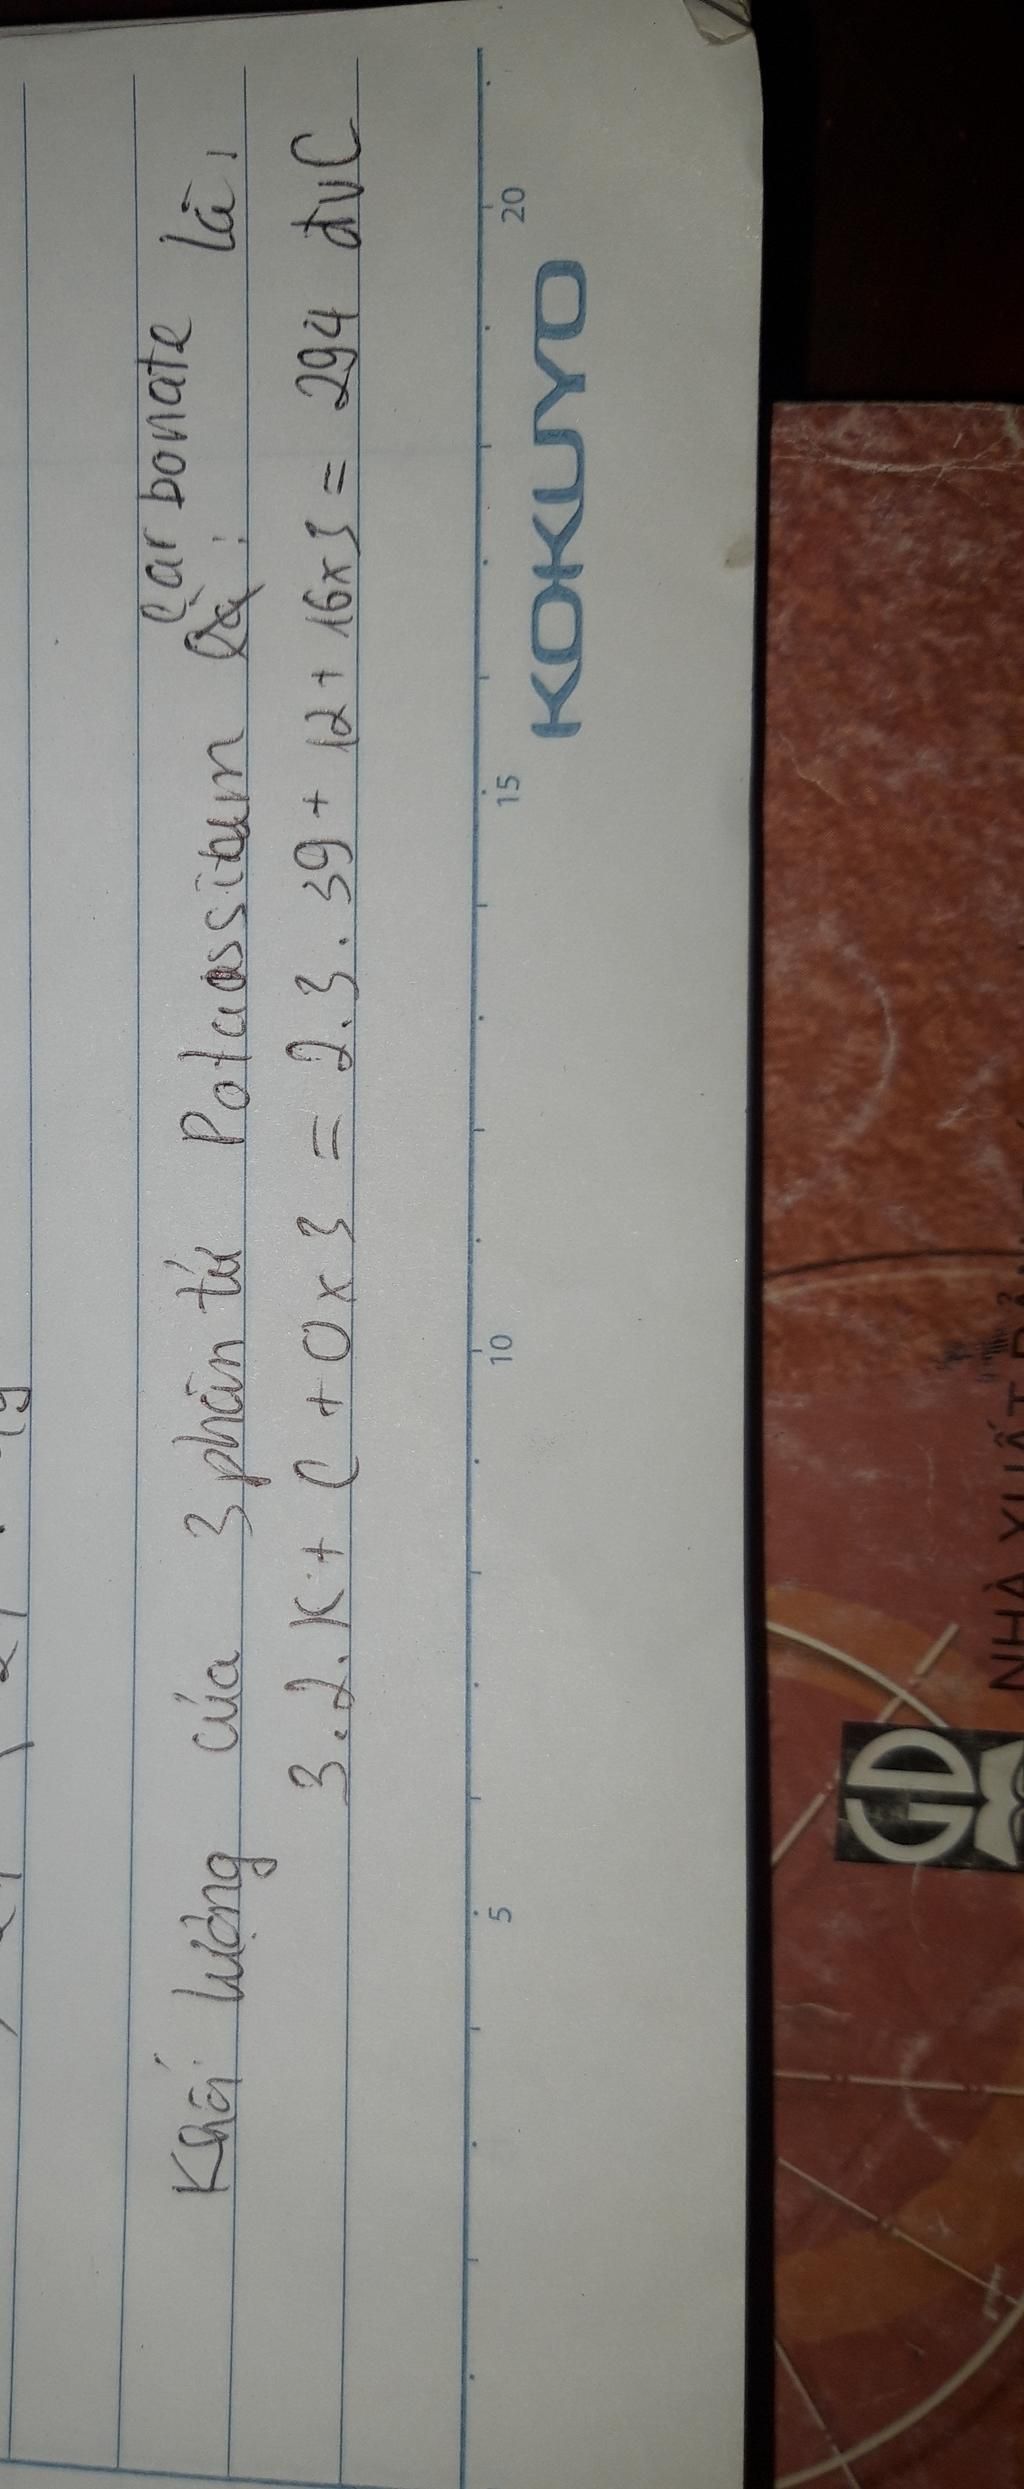 Carbonate là,
Khối lượng của 3 phân tử Potaassium là :
3.2.K + C + O x 3 = 2.3.39 + 12 + 16x3 = 294 đvC
5 10 15 20
KOKUYO
GD
NHÀ XUẤT BẢN